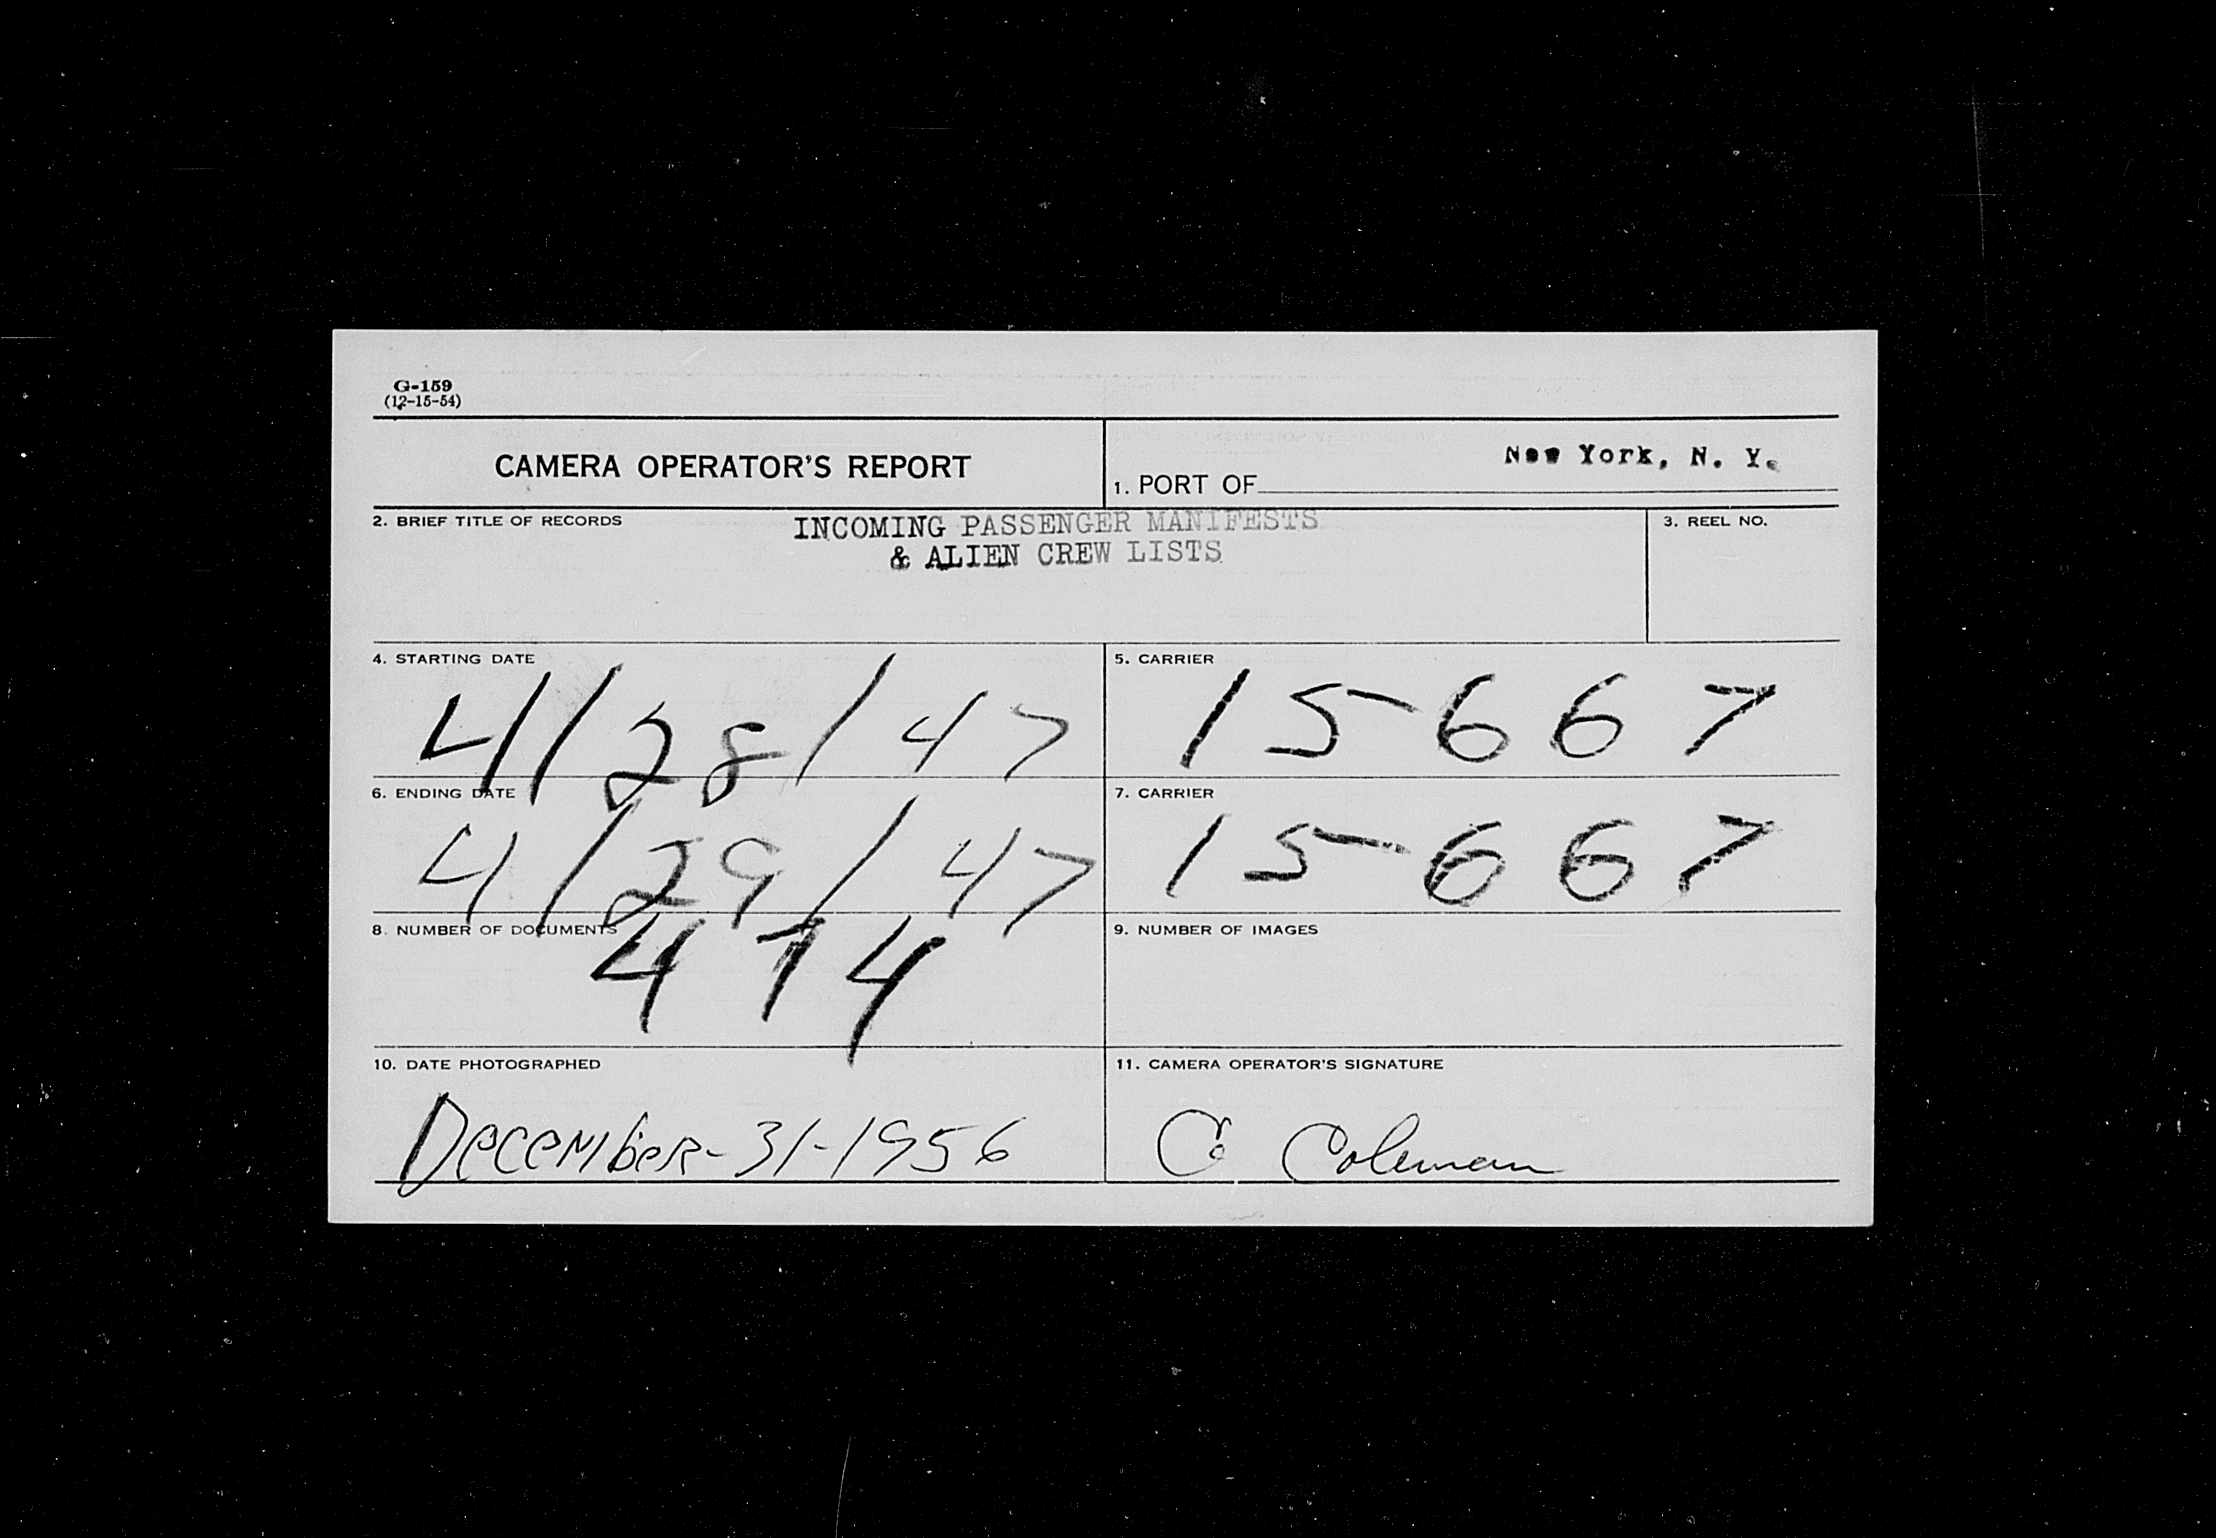 G-159
(12-15-54)
CAMERA OPERATOR'S REPORT
1. PORT OF New York, N. Y.
2. BRIEF TITLE OF RECORDS
INCOMING PASSENGER MANIFESTS
& ALIEN CREW LISTS
3. REEL NO.
4. STARTING DATE
4/28/47
5. CARRIER
15667
6. ENDING DATE
4/29/47
7. CARRIER
15667
8. NUMBER OF DOCUMENTS
474
9. NUMBER OF IMAGES
10. DATE PHOTOGRAPHED
December-31-1956
11. CAMERA OPERATOR'S SIGNATURE
C Coleman